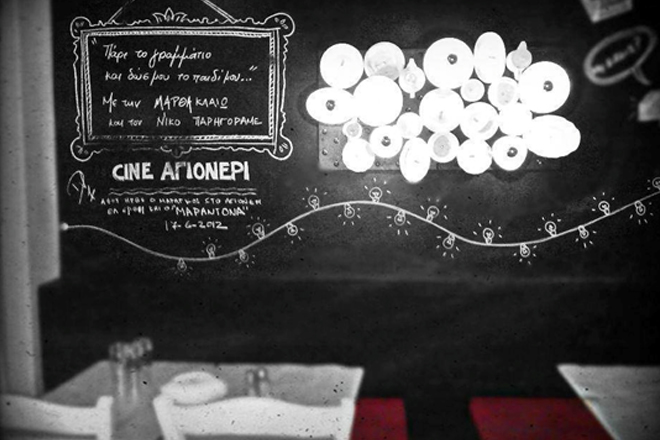 "Πάρε το γραμμάτιο
και δώσ' μου το παιδί μου..."
Με την ΜΑΡΘΑ ΚΛΑΙΩ
και τον ΝΙΚΟ ΠΑΡΗΓΟΡΑΜΕ
CINE ΑΓΙΟΝΕΡΙ
ΣΤΟ ΑΓΙΟΝΕΡΙ
"ΜΑΡΑΝΤΟΝΑ"
17-6-2012